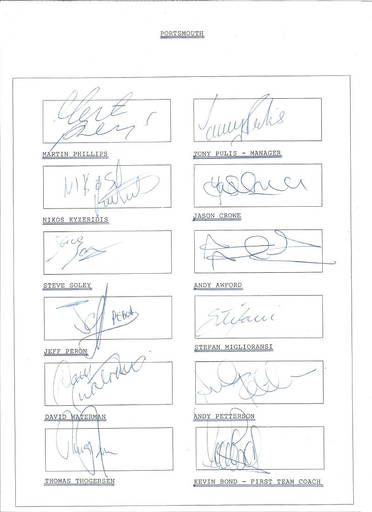 PORTSMOUTH
MARTIN PHILLIPS
Tony Pulis
TONY PULIS - MANAGER
NIKOS
NIKOS KYZERIDIS
JASON CROWE
STEVE SOLEY
ANDY AWFORD
Jeff PERON
JEFF PERON
Stefani
STEFAN MIGLIORANSI
DAVID WATERMAN
ANDY PETTERSON
THOMAS THOGERSEN
KEVIN BOND - FIRST TEAM COACH